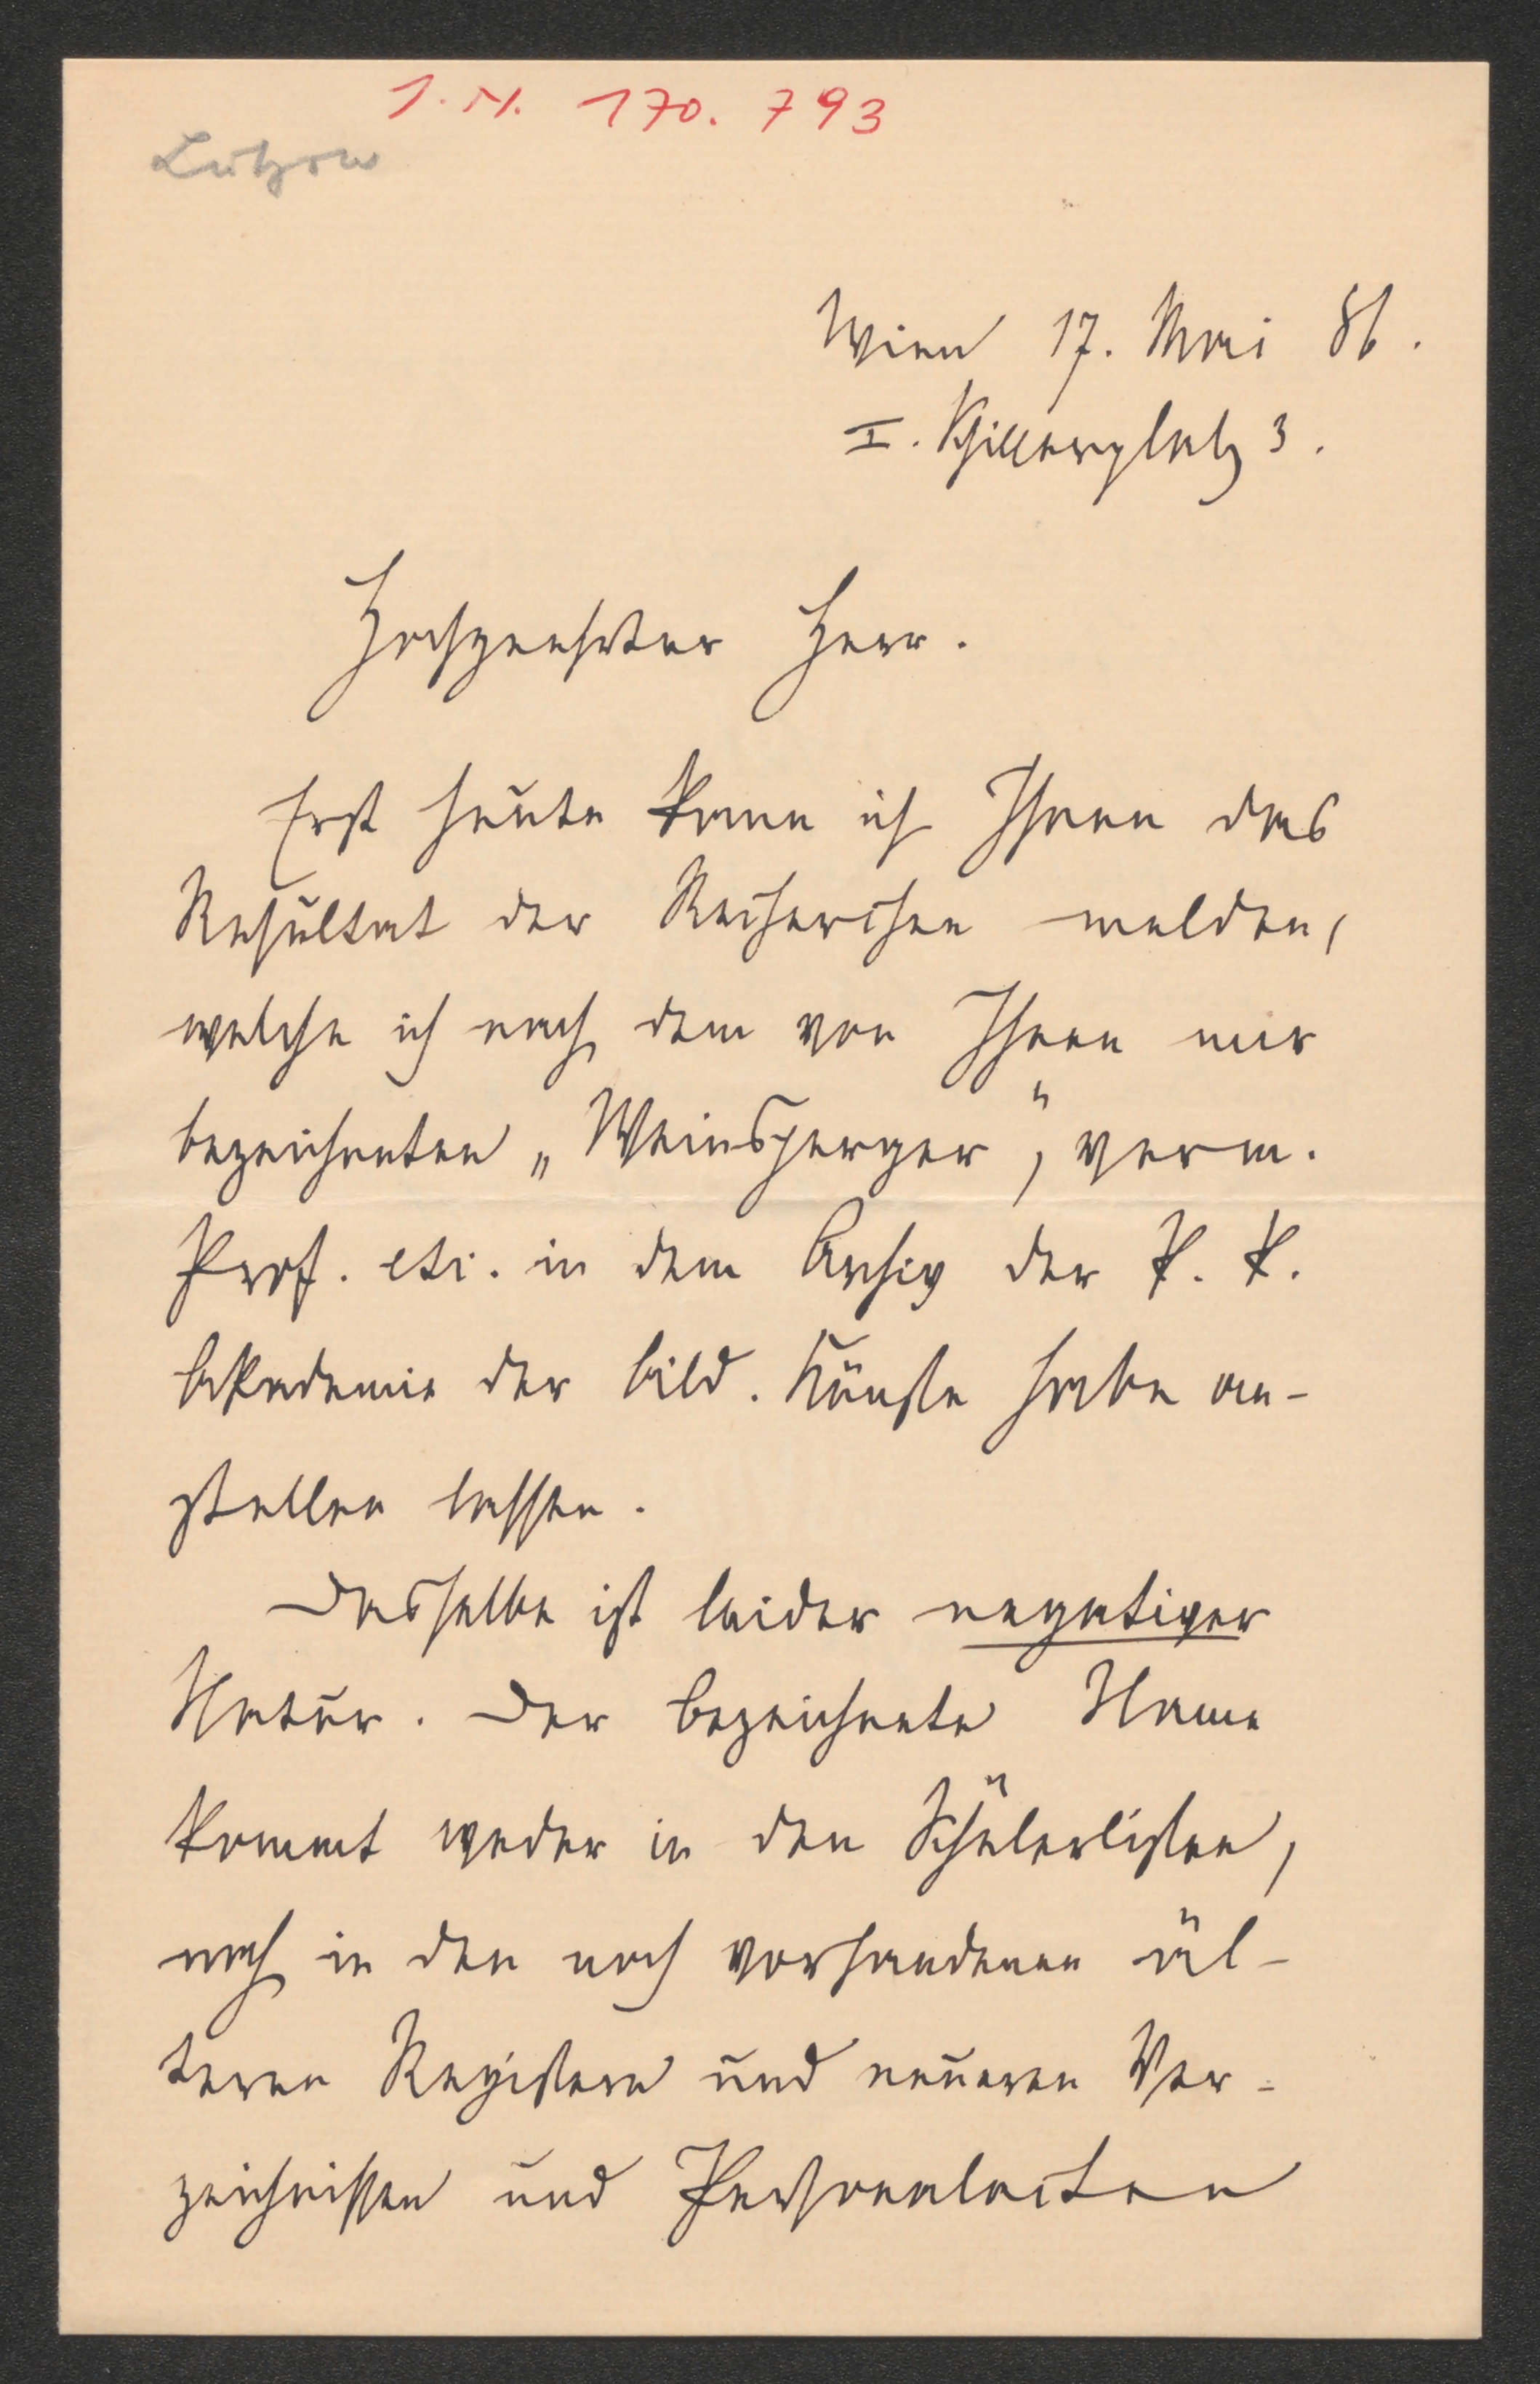 I. N. 170.793
Lützow
Wien 17. Mai 86.
I. Schillerplatz 3.
Hochgeehrter Herr.
Erst heute kann ich Ihnen das
Resultat der Recherchen melden,
welche ich nach dem von Ihnen mir
bezeichneten „Weinsperger", verm.
Prof. etc. in dem Archiv der k. k.
Akademie der bild. Künste habe an-
stellen lassen.
Dasselbe ist leider negativer
Natur. Der bezeichnete Name
kommt weder in den Schülerlisten,
noch in den noch vorhandenen äl-
teren Registern und neueren Ver-
zeichnissen und Personalacten